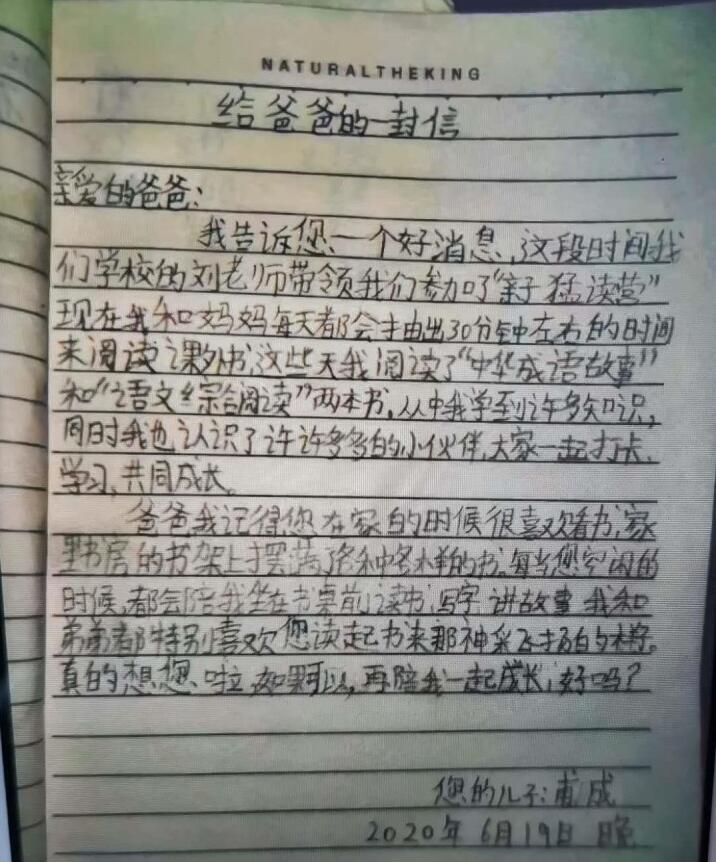 NATURALTHEKING
给爸爸的一封信
亲爱的爸爸：
我告诉您一个好消息，这段时间我
们学校的刘老师带领我们参加了“亲子猛读营”
现在我和妈妈每天都会抽出30分钟左右的时间
来阅读课外书，这些天我阅读了“中华成语故事”
和“语文综合阅读”两本书。从中我学到许多知识，
同时我也认识了许许多多的小伙伴，大家一起打卡、
学习，共同成长。
爸爸，我记得您在家的时候很喜欢看书，家
里书房的书架上摆满了各种各样的书。每当您空闲的
时候，都会陪我坐在书桌前，读书、写字、讲故事，我和
弟弟都特别喜欢您读起书来那神采飞扬的样子。
真的想您啦，如果可以，再陪我一起成长，好吗？
您的儿子：甫成
2020年6月19日 晚